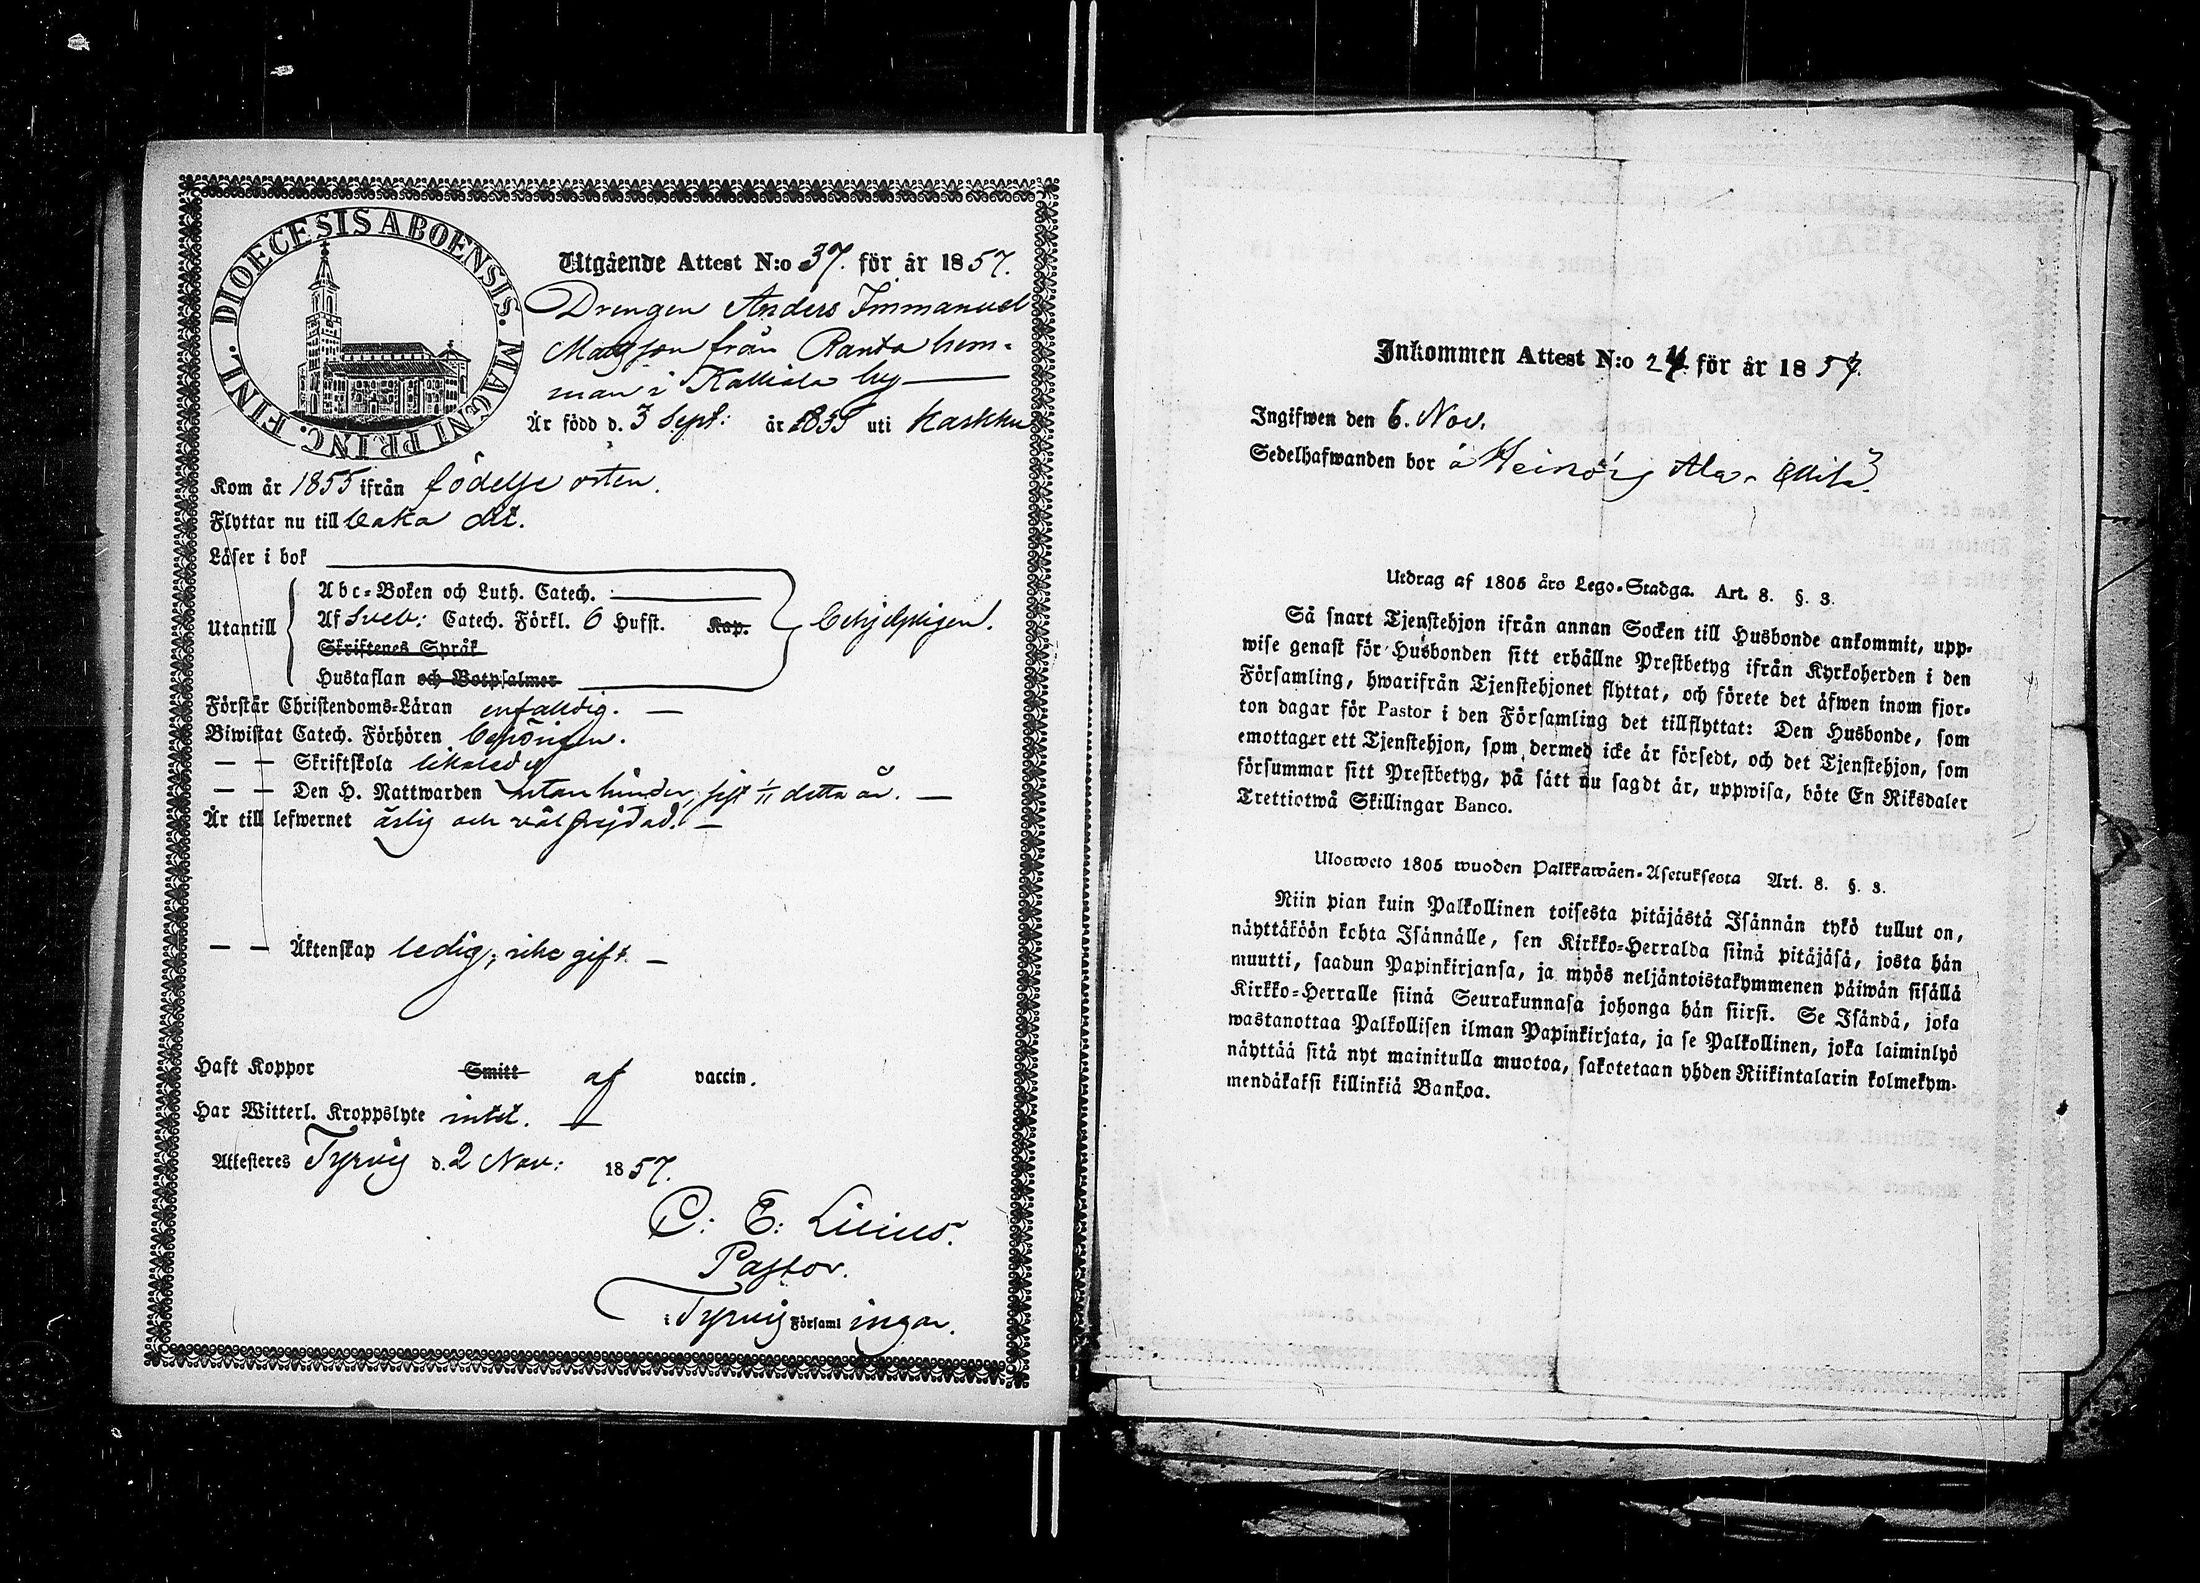 DIOECESIS ABOENSIS. MAGNI PRINC. FINL.
Utgående Attest N:o 37. för år 1857.
Drengen Anders Immanuel
Matsson från Ranta hem-
man i Kalliala by
Är född d. 3 Sept: år 1835 uti Karkku
Kom år 1855 ifrån födelse orten.
Flyttar nu till baka dit.
Läser i bok
Utantill
Abc-Boken och Luth. Catech.
Af Sveb: Catech. Förkl. 6 Hufst. Kap.
Skriftenes Språk
Hustaflan och Botpsalmer
behjelpligen.
Förstår Christendoms-Läran enfaldig. —
Biwistat Catech. Förhören behörigen.
— — Skriftskola likaledes
— — Den H. Nattwarden utan hinder, sist 1/11 detta år. —
Är till lefwernet ärlig och väl frejdad. —
— — Äktenskap ledig; icke gift. —
Haft Koppor Smitt af vaccin.
Har Witterl. Kroppslyte intet. —
Attesteres Tyrvis d. 2 Nov: 1857.
C: E: Lilius.
Pastor.
i Tyrvis Församl ingar.
Inkommen Attest N:o 24 för år 1857.
Ingifwen den 6. Nov.
Sedelhafwanden bor å Heinois Ala-
Utdrag af 1805 års Lego-Stadga. Art. 8. §. 3.
Så snart Tjenstehjon ifrån annan Socken till Husbonde ankommit, upp-
wise genast för Husbonden sitt erhållne Prestbetyg ifrån Kyrkoherden i den
Församling, hwarifrån Tjenstehjonet flyttat, och förete det äfwen inom fjor-
ton dagar för Pastor i den Församling det tillflyttat: Den Husbonde, som
emottager ett Tjenstehjon, som dermed icke är försedt, och det Tjenstehjon, som
försummar sitt Prestbetyg, på sätt nu sagdt är, uppwisa, böte En Riksdaler
Trettiotwå Skillingar Banco.
Ulosweto 1805 wuoden Palkkawäen-Asetuksesta Art. 8. §. 3.
Niin pian kuin Palkollinen toisesta pitäjästä Isännän tykö tullut on,
näyttäköön kohta Isännälle, sen Kirkko-Herralda siinä pitäjäsä, josta hän
muutti, saadun Papinkirjansa, ja myös neljäntoistakymmenen päiwän sisällä
Kirkko-Herralle siinä Seurakunnasa johonga hän siirsi. Se Isändä, joka
wastanottaa Palkollisen ilman Papinkirjata, ja se Palkollinen, joka laiminlyö
näyttää sitä nyt mainitulla muotoa, sakotetaan yhden Riikintalarin kolmekym-
mendäkaksi killinkiä Bankoa.